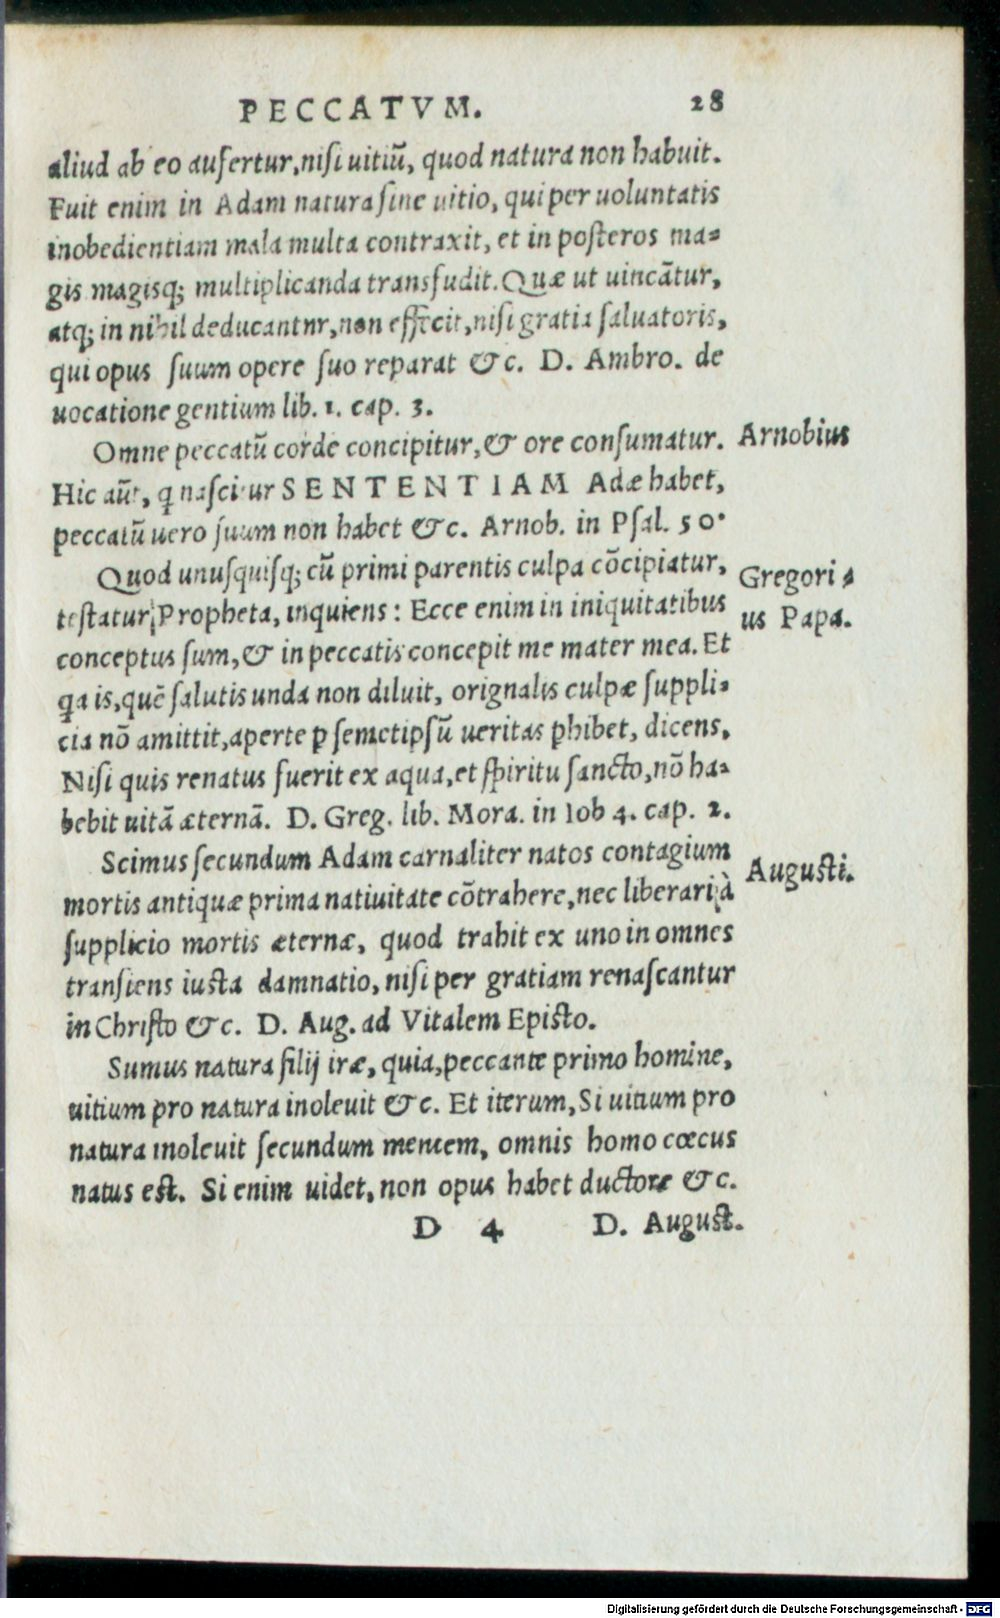 PECCATVM. 28
aliud ab eo aufertur, nisi uitiū, quod natura non habuit.
Fuit enim in Adam natura sine uitio, qui per uoluntatis
inobedientiam mala multa contraxit, et in posteros ma-
gis magisq; multiplicanda transfudit. Quæ ut uincātur,
atq; in nihil deducantnr, non effecit, nisi gratia saluatoris,
qui opus suum opere suo reparat &c. D. Ambro. de
uocatione gentium lib. 1. cap. 3.
Omne peccatū corde concipitur, & ore consumatur. Arnobius
Hic aūt, q nascitur SENTENTIAM Adæ habet,
peccatū uero suum non habet &c. Arnob. in Psal. 50.
Quod unusquisq; cū primi parentis culpa cōcipiatur, Gregori-
testatur Propheta, inquiens: Ecce enim in iniquitatibus us Papa.
conceptus sum, & in peccatis concepit me mater mea. Et
qa is, quē salutis unda non diluit, orignalis culpæ suppli-
cia nō amittit, aperte p semetipsū ueritas phibet, dicens,
Nisi quis renatus fuerit ex aqua, et spiritu sancto, nō ha-
bebit uitā æternā. D. Greg. lib. Mora. in Iob 4. cap. 2.
Scimus secundum Adam carnaliter natos contagium Augusti.
mortis antiquæ prima natiuitate cōtrahere, nec liberari à
supplicio mortis æternæ, quod trahit ex uno in omnes
transiens iusta damnatio, nisi per gratiam renascantur
in Christo &c. D. Aug. ad Vitalem Episto.
Sumus natura filij iræ, quia, peccante primo homine,
uitium pro natura inoleuit &c. Et iterum, Si uitium pro
natura inoleuit secundum mentem, omnis homo cœcus
natus est. Si enim uidet, non opus habet ductore &c.
D 4 D. August.
Digitalisierung gefördert durch die Deutsche Forschungsgemeinschaft - DFG